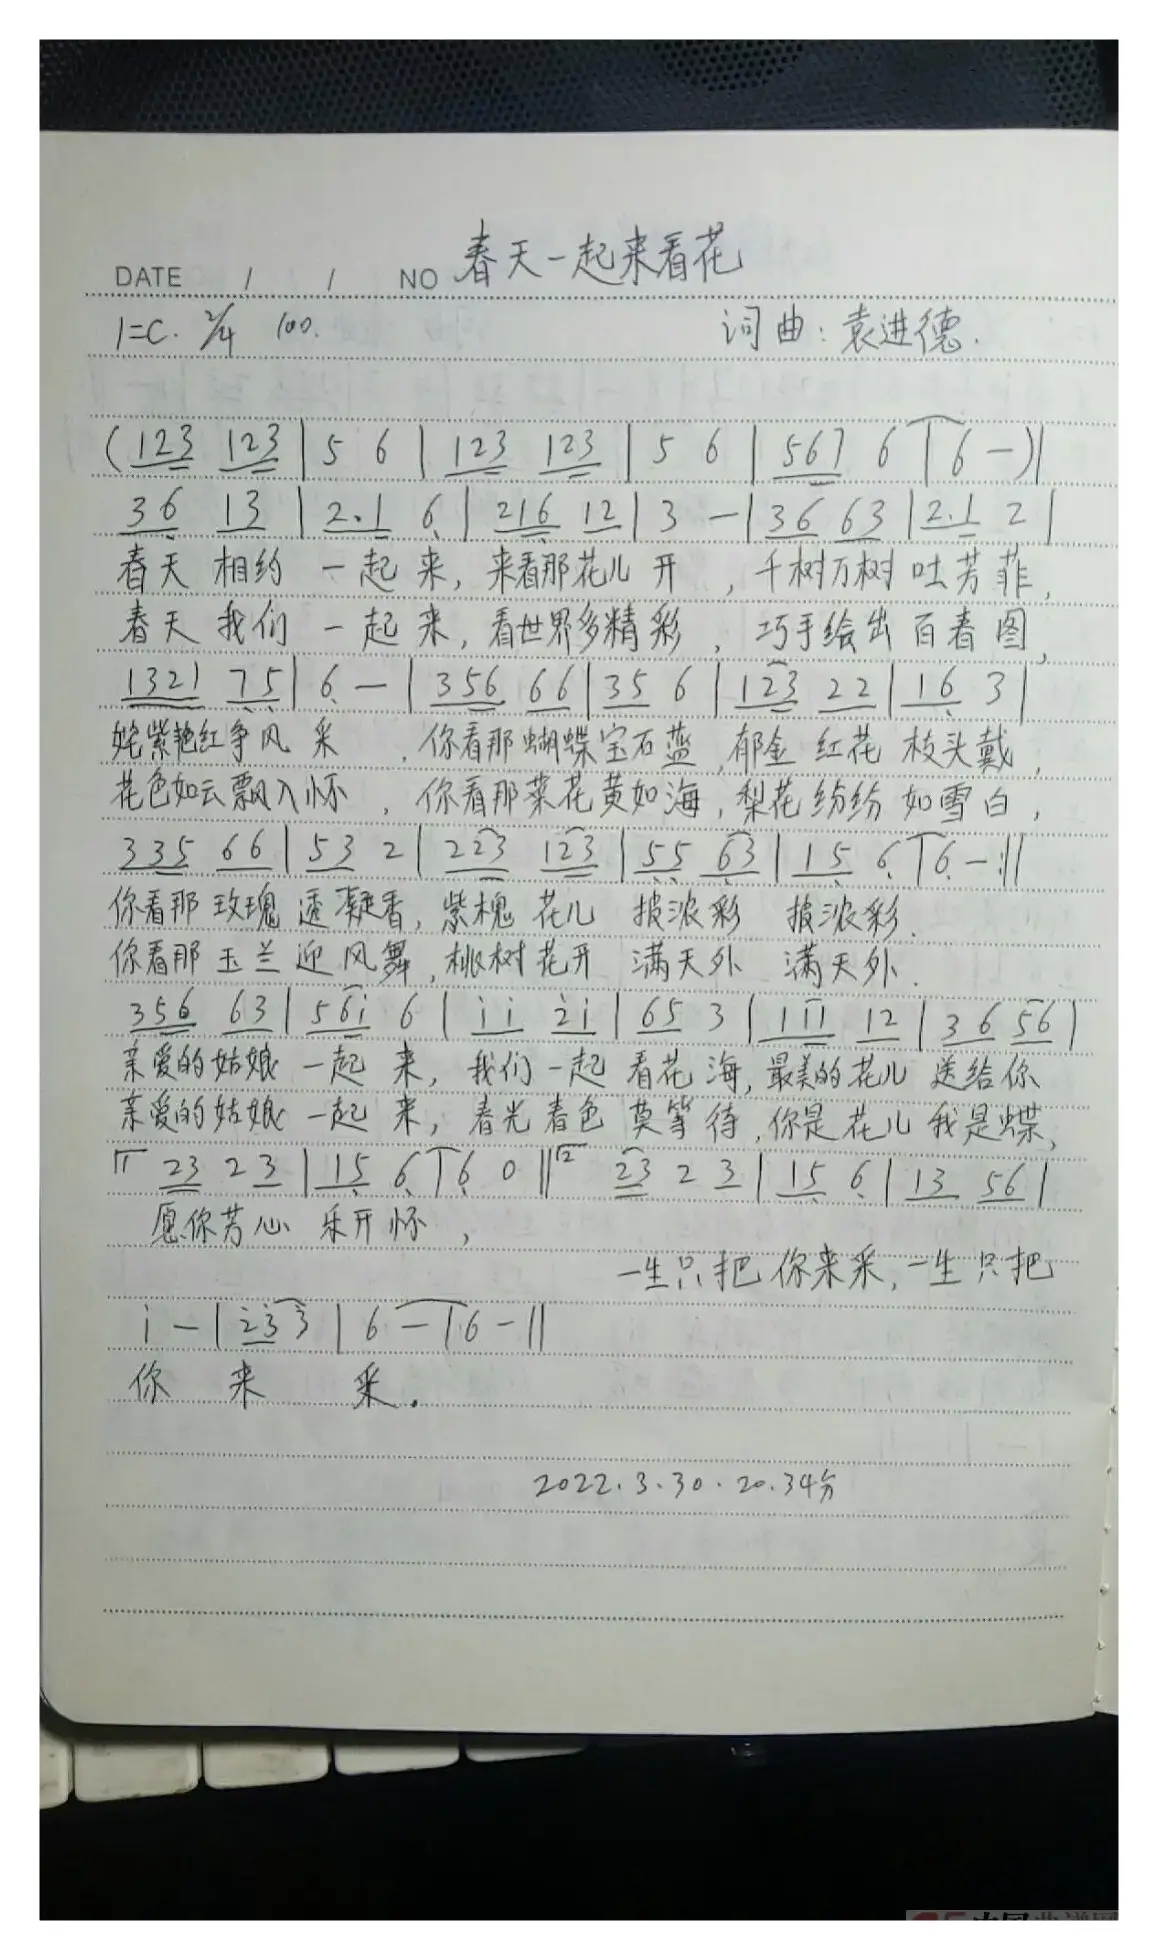 DATE / / NO 春天一起来看花
1=C. 2/4 100. 词曲:袁进德.
(123 123|5 6|123 123|5 6|567 6|6-)|
36 13|2.1 6|216 12|3-|36 63|2.1 2|
春天 相约 一起来,来看那花儿开,千树万树吐芳菲,
春天 我们 一起来,看世界多精彩,巧手绘出百春图,
1321 75|6-|356 66|35 6|123 22|16 3|
姹紫艳红争风采,你看那蝴蝶宝石蓝,郁金红花枝头戴,
花色如云飘入怀,你看那菜花黄如海,梨花纷纷如雪白,
335 66|53 2|223 123|55 63|15 6|6-:||
你看那玫瑰透凝香,紫槐花儿 披浓彩 披浓彩.
你看那玉兰迎风舞,桃树花开 满天外 满天外.
356 63|56i 6|ii 2i|65 3|111 12|36 56|
亲爱的姑娘一起来,我们一起看花海,最美的花儿送给你
亲爱的姑娘一起来,春光春色莫等待,你是花儿我是蝶,
1 23 23|15 6|6 0||2 23 2 3|15 6|13 56|
愿你芳心 乐开怀,
一生只把你来采,一生只把
i-|23 3|6-|6-||
你 来 采.
2022.3.30.20.34分